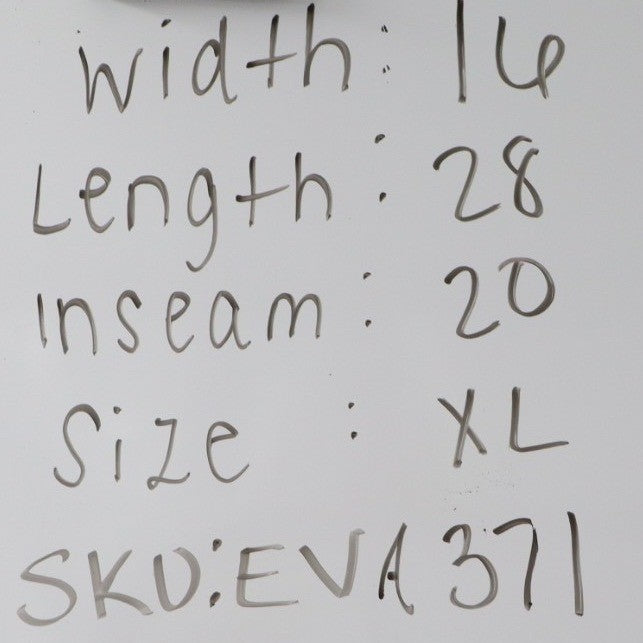 Width: 16
Length: 28
Inseam: 20
Size: XL
SKU: EVA371